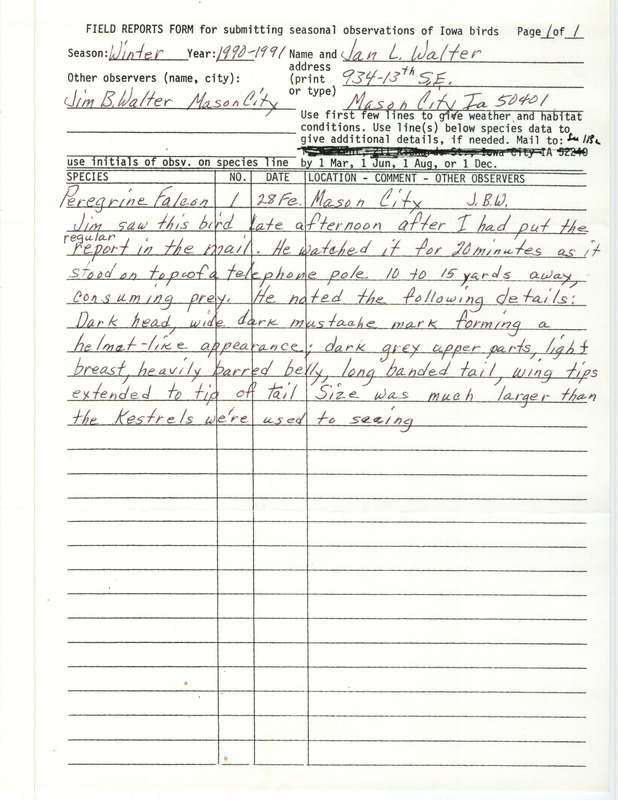 FIELD REPORTS FORM for submitting seasonal observations of Iowa birds Page 1 of 1
Season: Winter Year: 1990-1991 Name and Jan L. Walter
address
Other observers (name, city): (print 934-13th S.E.
or type)
Jim B. Walter Mason City Mason City Ia 50401
Use first few lines to give weather and habitat
conditions. Use line(s) below species data to
give additional details, if needed. Mail to:
St., Iowa City IA 52240
use initials of obsv. on species line by 1 Mar, 1 Jun, 1 Aug, or 1 Dec.
SPECIES NO. DATE LOCATION - COMMENT - OTHER OBSERVERS
Peregrine Falcon 1 28 Fe. Mason City J.B.W.
Jim saw this bird late afternoon after I had put the
regular
report in the mail. He watched it for 20 minutes as it
stood on top of a telephone pole 10 to 15 yards away,
consuming prey. He noted the following details:
Dark head, wide dark mustache mark forming a
helmet-like appearance; dark grey upper parts, light
breast, heavily barred belly, long banded tail, wing tips
extended to tip of tail Size was much larger than
the Kestrels we're used to seeing